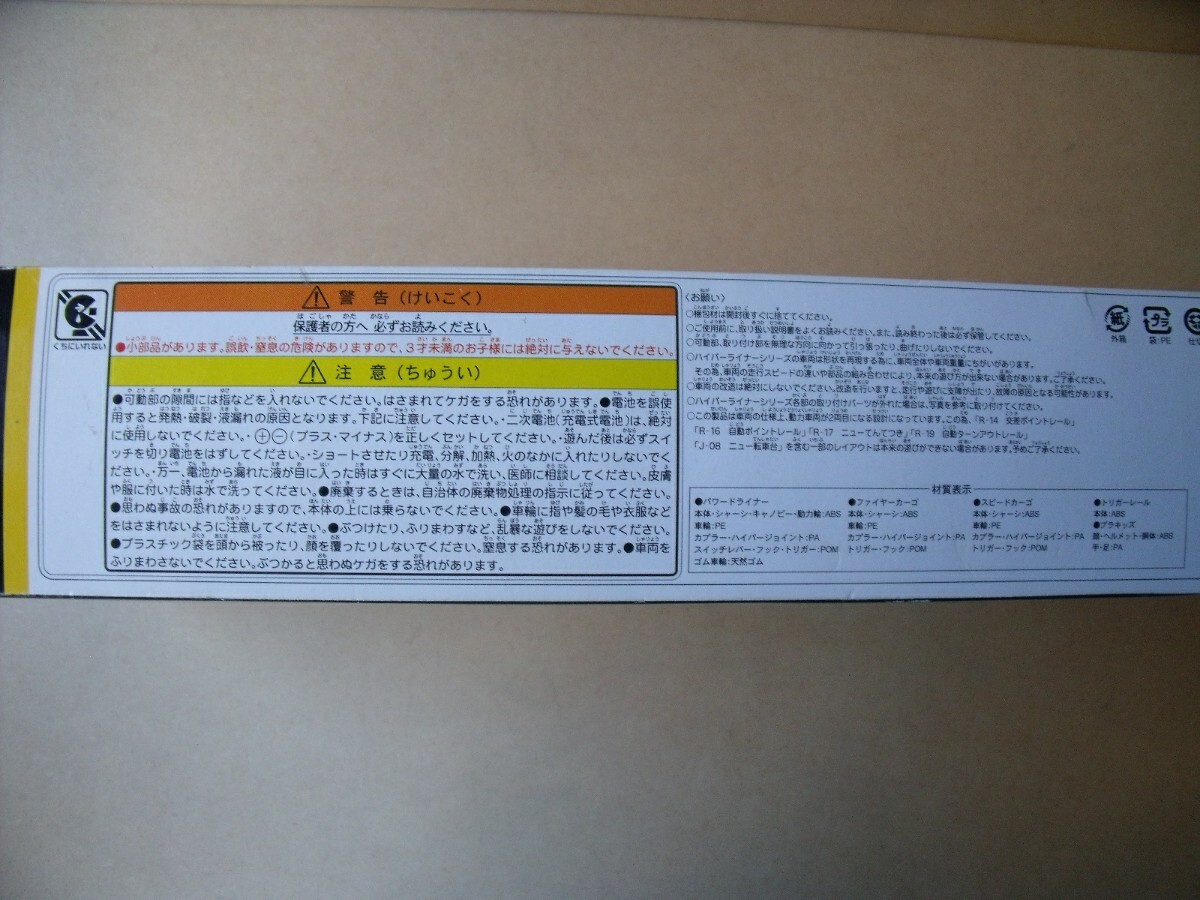 くちにいれない
警告（けいこく）
保護者の方へ 必ずお読みください。
●小部品があります。誤飲・窒息の危険がありますので、3才未満のお子様には絶対に与えないでください。
注意（ちゅうい）
●可動部の隙間には指などを入れないでください。はさまれてケガをする恐れがあります。●電池を誤使
用すると発熱・破裂・液漏れの原因となります。下記に注意してください。・二次電池(充電式電池)は、絶対
に使用しないでください。・⊕⊖(プラス・マイナス)を正しくセットしてください。・遊んだ後は必ずスイ
ッチを切り電池をはずしてください。・ショートさせたり充電、分解、加熱、火のなかに入れたりしないでく
ださい。・万一、電池から漏れた液が目に入った時はすぐに大量の水で洗い、医師に相談してください。皮膚
や服に付いた時は水で洗ってください。●廃棄するときは、自治体の廃棄物処理の指示に従ってください。
●思わぬ事故の恐れがありますので、本体の上には乗らないでください。●車輪に指や髪の毛や衣服など
をはさまれないように注意してください。●ぶつけたり、ふりまわすなど、乱暴な遊びをしないでください。
●プラスチック袋を頭から被ったり、顔を覆ったりしないでください。窒息する恐れがあります。●車両を
ふりまわさないでください。ぶつかると思わぬケガをする恐れがあります。
〈お願い〉
○梱包材は開封後すぐに捨ててください。
○ご使用前に、取り扱い説明書をよくお読みください。また、読み終わった後は必ず保管してください。
○可動部、取り付け部を無理な方向に向かって引っ張ったり、曲げたりしないでください。
○ハイパーライナーシリーズの車両は形状を再現する為に、車両全体や車両重量にちがいがあります。
その為、車両の走行スピードの違いや部品の組み合わせにより、本来の遊び方が出来ない場合があります。ご了承ください。
○車両の改造は絶対にしないでください。改造を行いますと、走行や遊びに支障が出たり、故障の原因となる可能性があります。
○ハイパーライナーシリーズ各部の取り付けパーツが外れた場合は、写真を参考に取り付けてください。
○この製品は車両の仕様上、動力車両が2両目になる設計になっています。この為、「R-14 交差ポイントレール」
「R-16 自動ポイントレール」「R-17 ニューてんてつき」「R-19 自動ターンアウトレール」
「J-08 ニュー転車台」を含む一部のレイアウトは本来の遊びができない場合があります。予めご了承ください。
紙
外箱
プラ
袋:PE
材質表示
●パワードライナー
本体・シャーシ・キャノピー・動力輪:ABS
車輪:PE
カプラー・ハイパージョイント:PA
スイッチレバー・フック・トリガー:POM
ゴム車輪:天然ゴム
●ファイヤーカーゴ
本体・シャーシ:ABS
車輪:PE
カプラー・ハイパージョイント:PA
トリガー・フック:POM
●スピードカーゴ
本体・シャーシ:ABS
車輪:PE
カプラー・ハイパージョイント:PA
トリガー・フック:POM
●トリガーレール
本体:ABS
●プラキッズ
顔・ヘルメット・胴体:ABS
手・足:PA